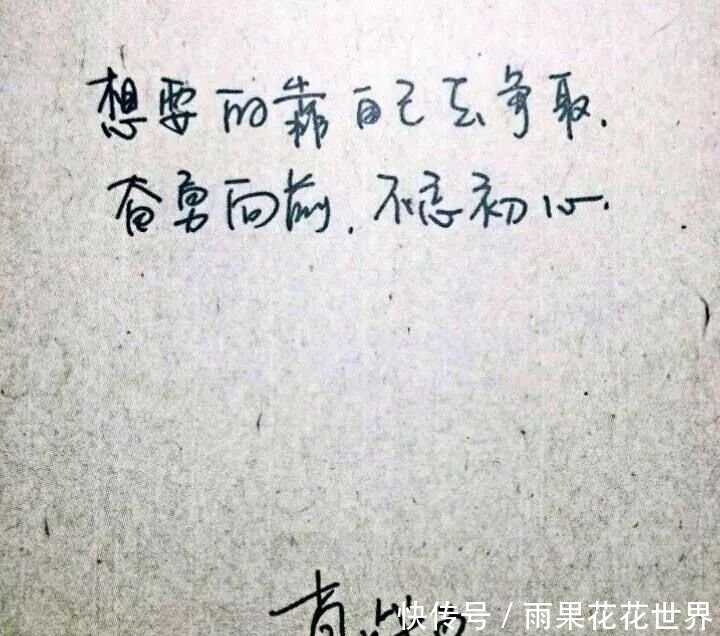 想要的靠自己去争取.
奋勇向前.不忘初心.
快传号/雨果花花世界